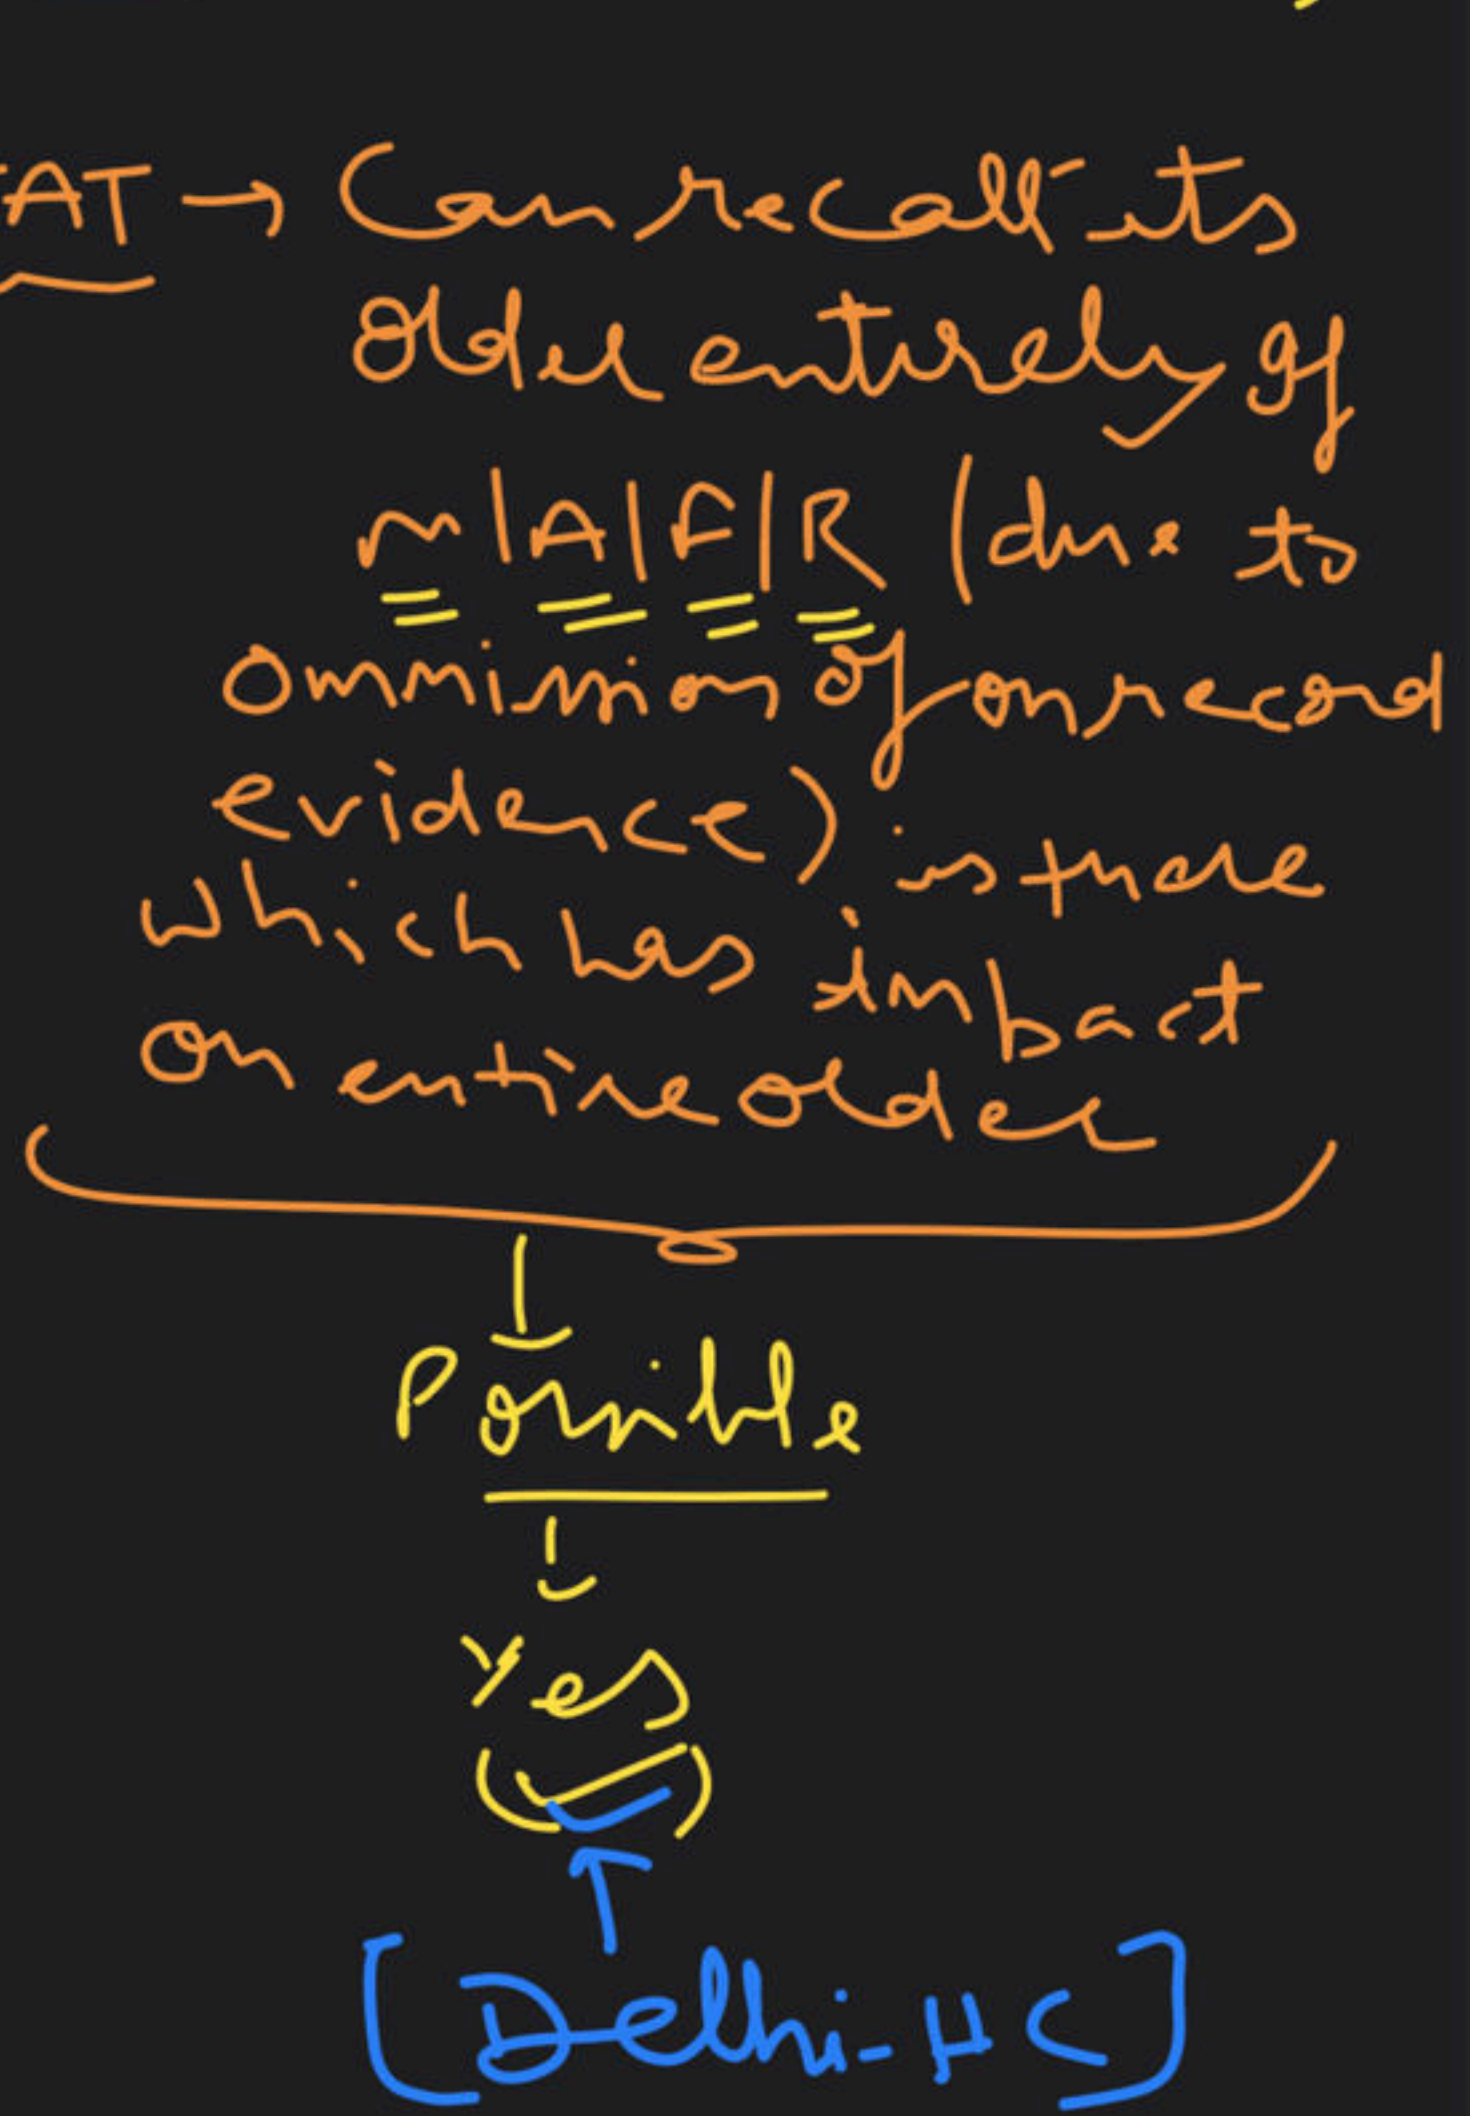 AT → Can recall its
order entirely if
M/A/F/R (due to
Ommission of on record
evidence) is there
which has impact
on entire order
Possible
Yes
[Delhi-HC]